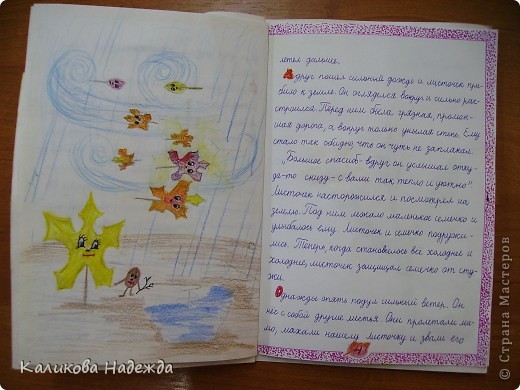 летел дальше.
Вдруг пошёл сильный дождь и листочек при-
било к земле. Он огляделся вокруг и сильно рас-
строился. Перед ним была грязная, промок-
шая дорога, а вокруг только унылая степь. Ему
стало так обидно, что он чуть не заплакал.
"Большое спасибо – вдруг он услышал отку-
да-то снизу – с вами так тепло и уютно"
Листочек насторожился и посмотрел на
землю. Под ним лежало маленькое семечко и
улыбалось ему. Листочек и семечко подружи-
лись. Теперь, когда становилось всё холоднее и
холоднее, листочек защищал семечко от сту-
жи.
Однажды опять подул сильный ветер. Он
нёс с собой другие листья. Они пролетали ми-
мо, махали нашему листочку и звали его
4
Каликова Надежда
© Страна Мастеров